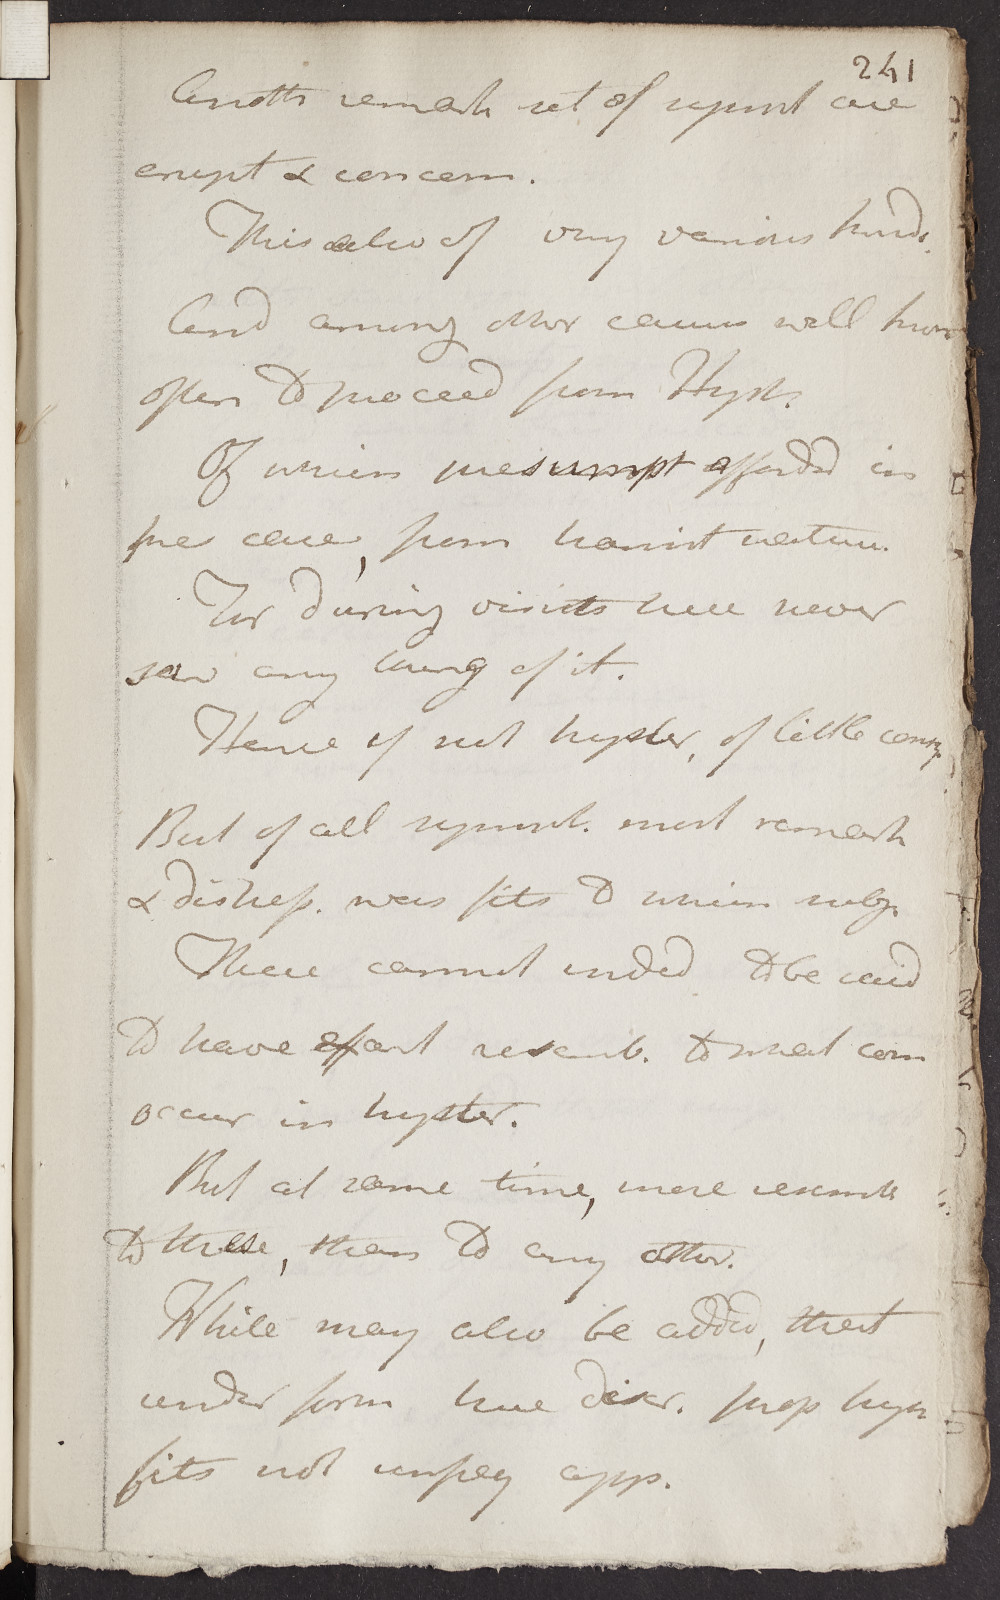 241
Anoth remark set of sympt are
erupt & concern.
This also of very various kinds.
And among other causes well know
often to proceed from Hyst.
Of which presumpt afforded in
pres case, from transit nature.
For during visits here never
saw any thing of it.
Hence if not hyster, of little conseq
But of all sympt. most remark
& distress. was fits to which subj.
These cannot indeed to be said
to have exact resemb. to what com
occur in hyster.
But at same time, more resemb
to these, than to any other.
While may also be added, that
under form here descr. prop hyst
fits not unfreq app.